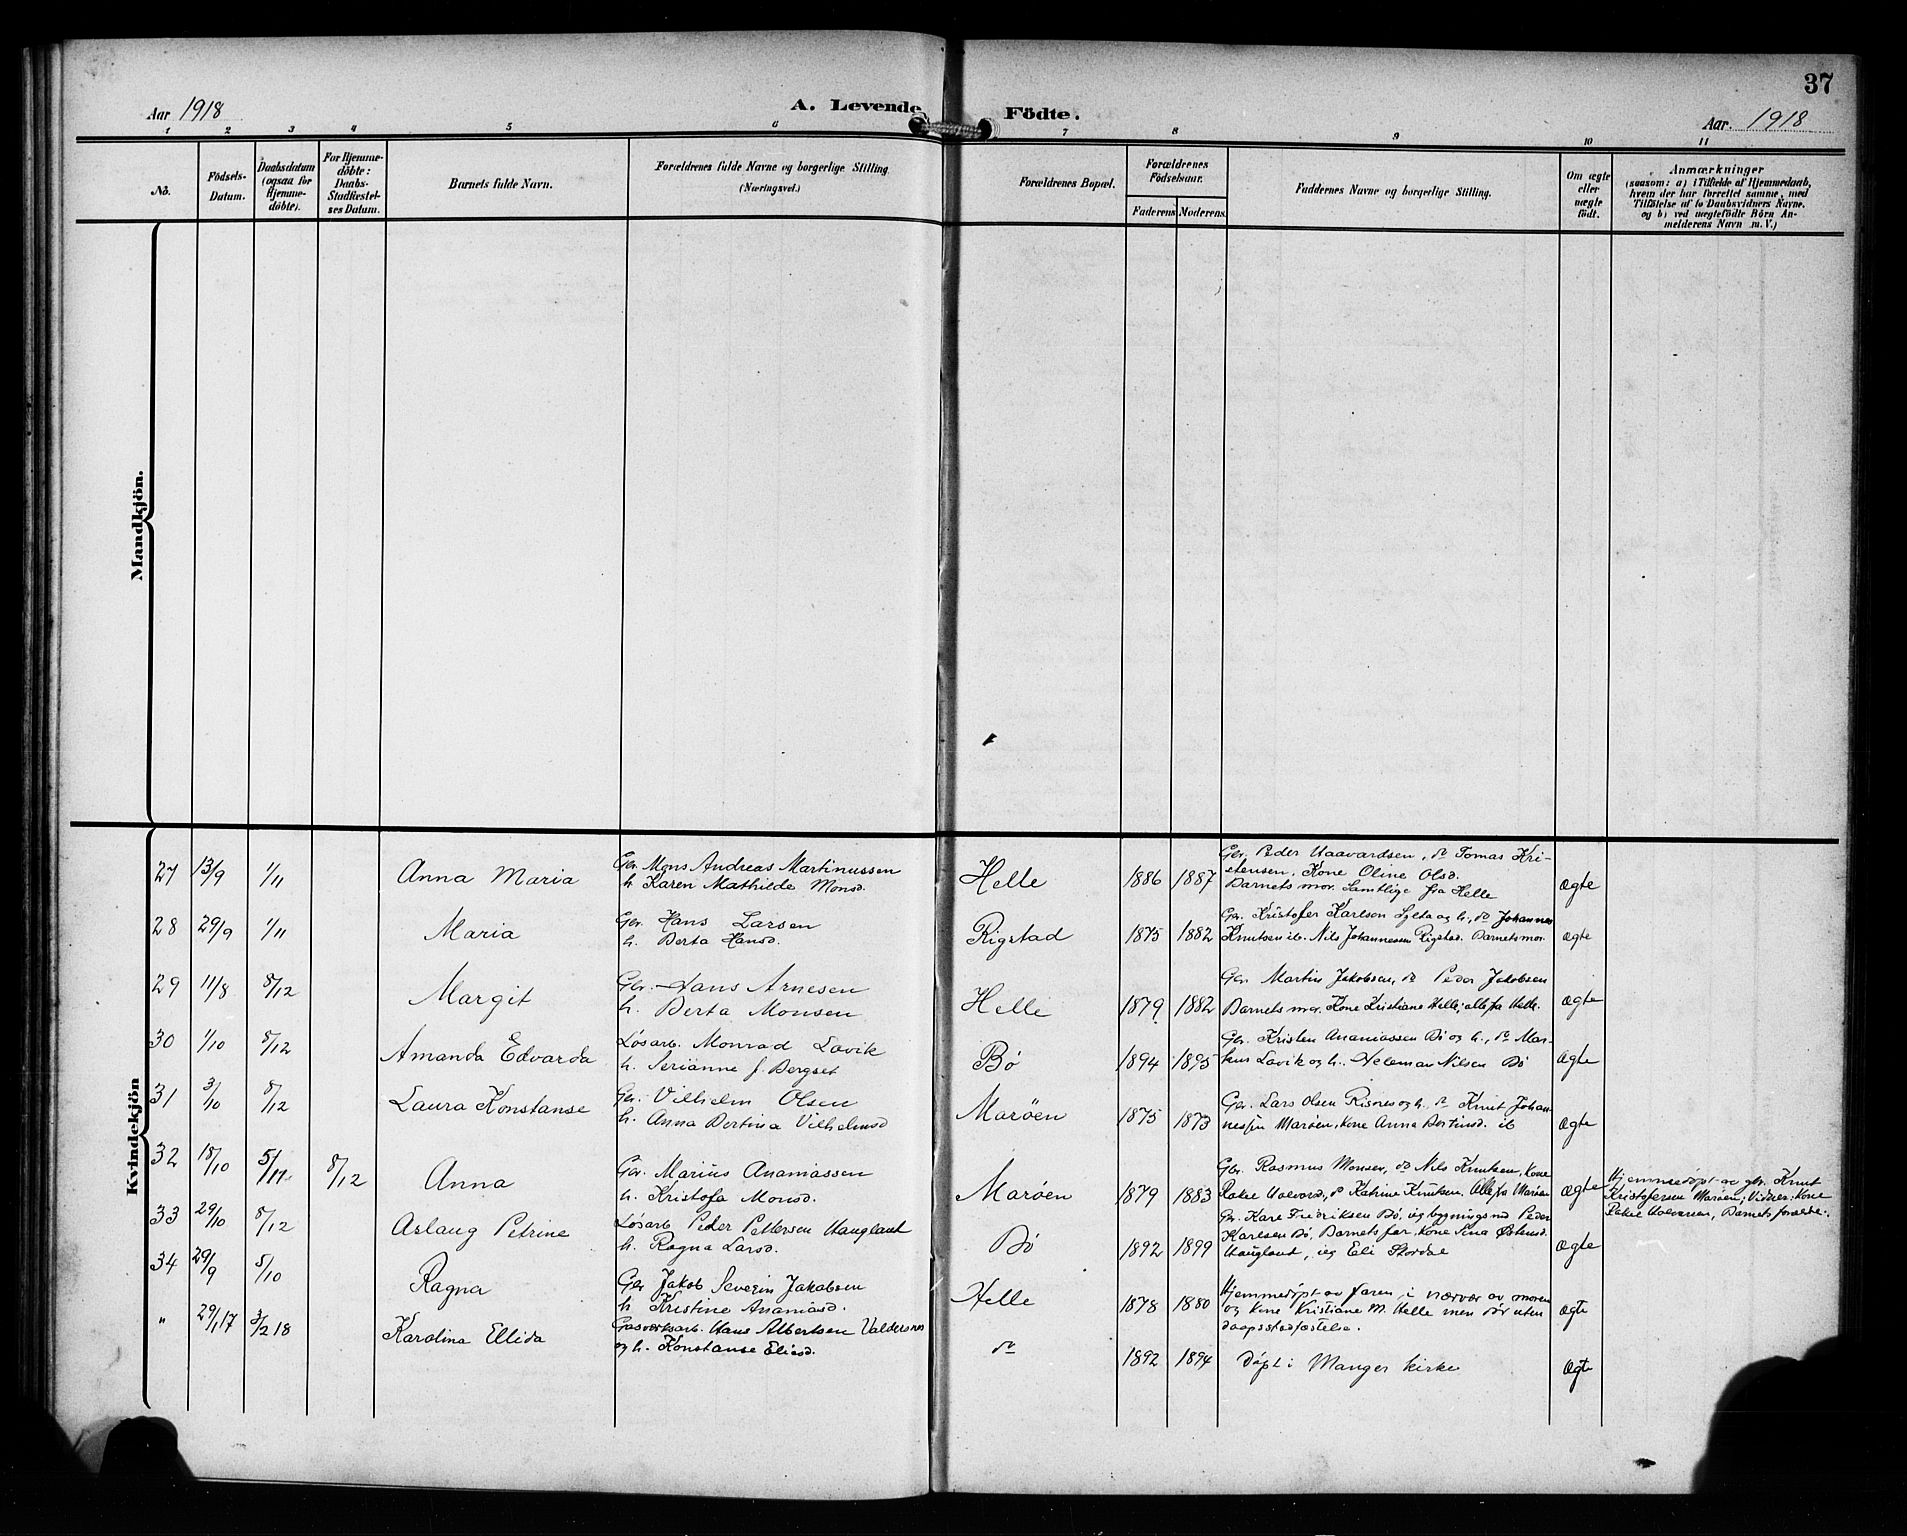 37
Aar 1918
A. Levende Födte.
Aar. 1918
1 2 3 4 5 6 7 8 9 10 11
No.
Födsels-
Datum.
Daabsdatum
(ogsaa for
Hjemme-
döbte).
For Hjemme-
döbte:
Daabs-
Stadfæstel-
ses Datum.
Barnets fulde Navn.
Forældrenes fulde Navne og borgerlige Stilling.
(Næringsvei.)
Forældrenes Bopæl.
Forældrenes
Födselsaar.
Faderens
Moderens.
Faddernes Navne og borgerlige Stilling.
Om ægte
eller
uægte
födt.
Anmærkninger
(saasom: a) i Tilfælde af Hjemmedaab,
hvem der har forrettet samme, med
Tilföielse af to Daabsvidners Navne.
og b) ved uægtefödte Börn An-
melderens Navn m.V.)
Mandkjön.
Kvindekjön
27 13/9 1/11 Anna Maria
Gbr. Mons Andreas Martinussen
h. Karen Mathilde Monsd.
Helle 1886 1887
Gbr. Peder Haavardsen, do Tomas Kri-
stensen. Kone Oline Olsd.
Barnets mor. Samtlige fra Helle
ægte
28 29/9 1/11 Maria
Gbr. Hans Larsen
h. Berta Hansd.
Rigstad 1875 1882
Gbr. Kristofer Karlsen Sylta og h., do Johannes
Knutsen ib. Nils Johannessen Rigstad. Barnets mor.
ægte
29 11/8 8/12 Margit
Gbr. Hans Arnesen
h. Berta Monsen
Helle 1879 1882
Gbr. Martin Jakobsen, do Peder Jakobsen
Barnets mor. Kone Kristiane Helle, alle fra Helle.
ægte
30 1/10 8/12 Amanda Edvarda
Løsarb. Monrad Lavik
h. Serianne f. Bergset
Bø 1894 1895
Gbr. Kristen Ananiassen Bø og h., do Mar-
kus Lavik og h. Nilsen Bø
ægte
31 3/10 8/12 Laura Konstanse
Gbr. Vilhelm Olsen
h. Anna Bertina Vilhelmsd
Marøen 1875 1873
Gbr. Lars Olsen Risnes og h. do Knut Johan-
nessen Marøen, Kone Anna Bertinsd. ib
ægte
32 18/10 5/11 8/12 Anna
Gbr. Marius Ananiassen
h. Kristofa Monsd.
Marøen 1879 1883
Gbr. Rasmus Monsen, do Nils Knutsen, Kone
Rakel Halvard, do Katrine Knutsen. Alle fra Marøen
ægte
Hjemmedøpt av gbr. Knut
Kristofersen Marøen; Vidner: Kone
Rakel Halvorsen, Barnets forældre.
33 29/10 8/12 Aslaug Petrine
Løsarb. Peder Pettersen Haugland
h. Ragna Larsd.
Bø 1892 1899
Gbr. Kare Fredriksen Bø, ug bygningsmd Peder
Karlsen Bø, Barnets far, Kone Sina Østensd.
Haugland, ug Eli Stordal
ægte
34 29/9 5/10 Ragna
Gbr Jakob Severin Jakobsen
h Kristine Ananiasd.
Helle 1878 1880
Hjemmedøpt av faren i nærvær av moren
og kone Kristiane M. Helle men dør uten
daapsstadfæstelse.
ægte
" 29/1 17 3/2 18 Karolina Ellida
Gasverksarb. Hans Albertsen Valdersnes
og h. Konstanse Eliesd.
do 1892 1894
Døpt i Manger kirke
ægte